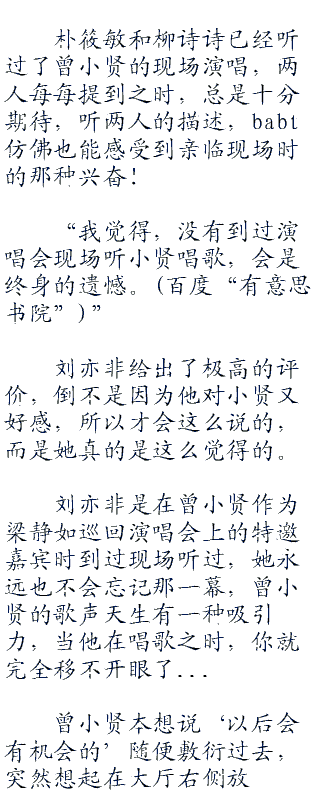 朴筱敏和柳诗诗已经听
过了曾小贤的现场演唱，两
人每每提到之时，总是十分
期待，听两人的描述，babt
仿佛也能感受到亲临现场时
的那种兴奋！
“我觉得，没有到过演
唱会现场听小贤唱歌，会是
终身的遗憾。(百度“有意思
书院”)”
刘亦非给出了极高的评
价，倒不是因为他对小贤又
好感，所以才会这么说的，
而是她真的是这么觉得的。
刘亦非是在曾小贤作为
梁静如巡回演唱会上的特邀
嘉宾时到过现场听过，她永
远也不会忘记那一幕，曾小
贤的歌声天生有一种吸引
力，当他在唱歌之时，你就
完全移不开眼了...
曾小贤本想说‘以后会
有机会的’随便敷衍过去，
突然想起在大厅右侧放